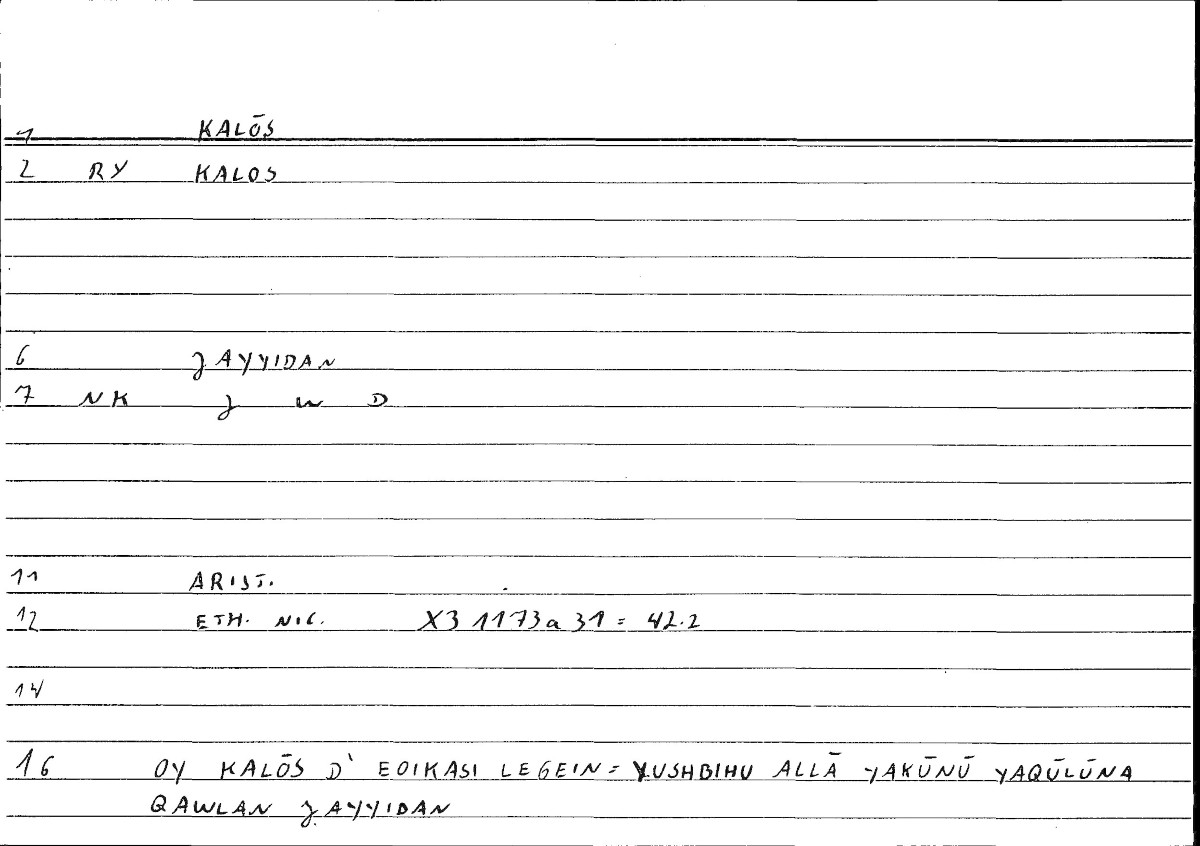 1 KALŌS
2 RY KALOS
6 JAYYIDAN
7 NK J W D
11 ARIST.
12 ETH. NIC. X3 1173a 31 = 42.2
14
16 OY KALŌS D' EOIKASI LEGEIN = YUSHBIHU ALLĀ YAKŪNŪ YAQŪLŪNA
QAWLAN JAYYIDAN